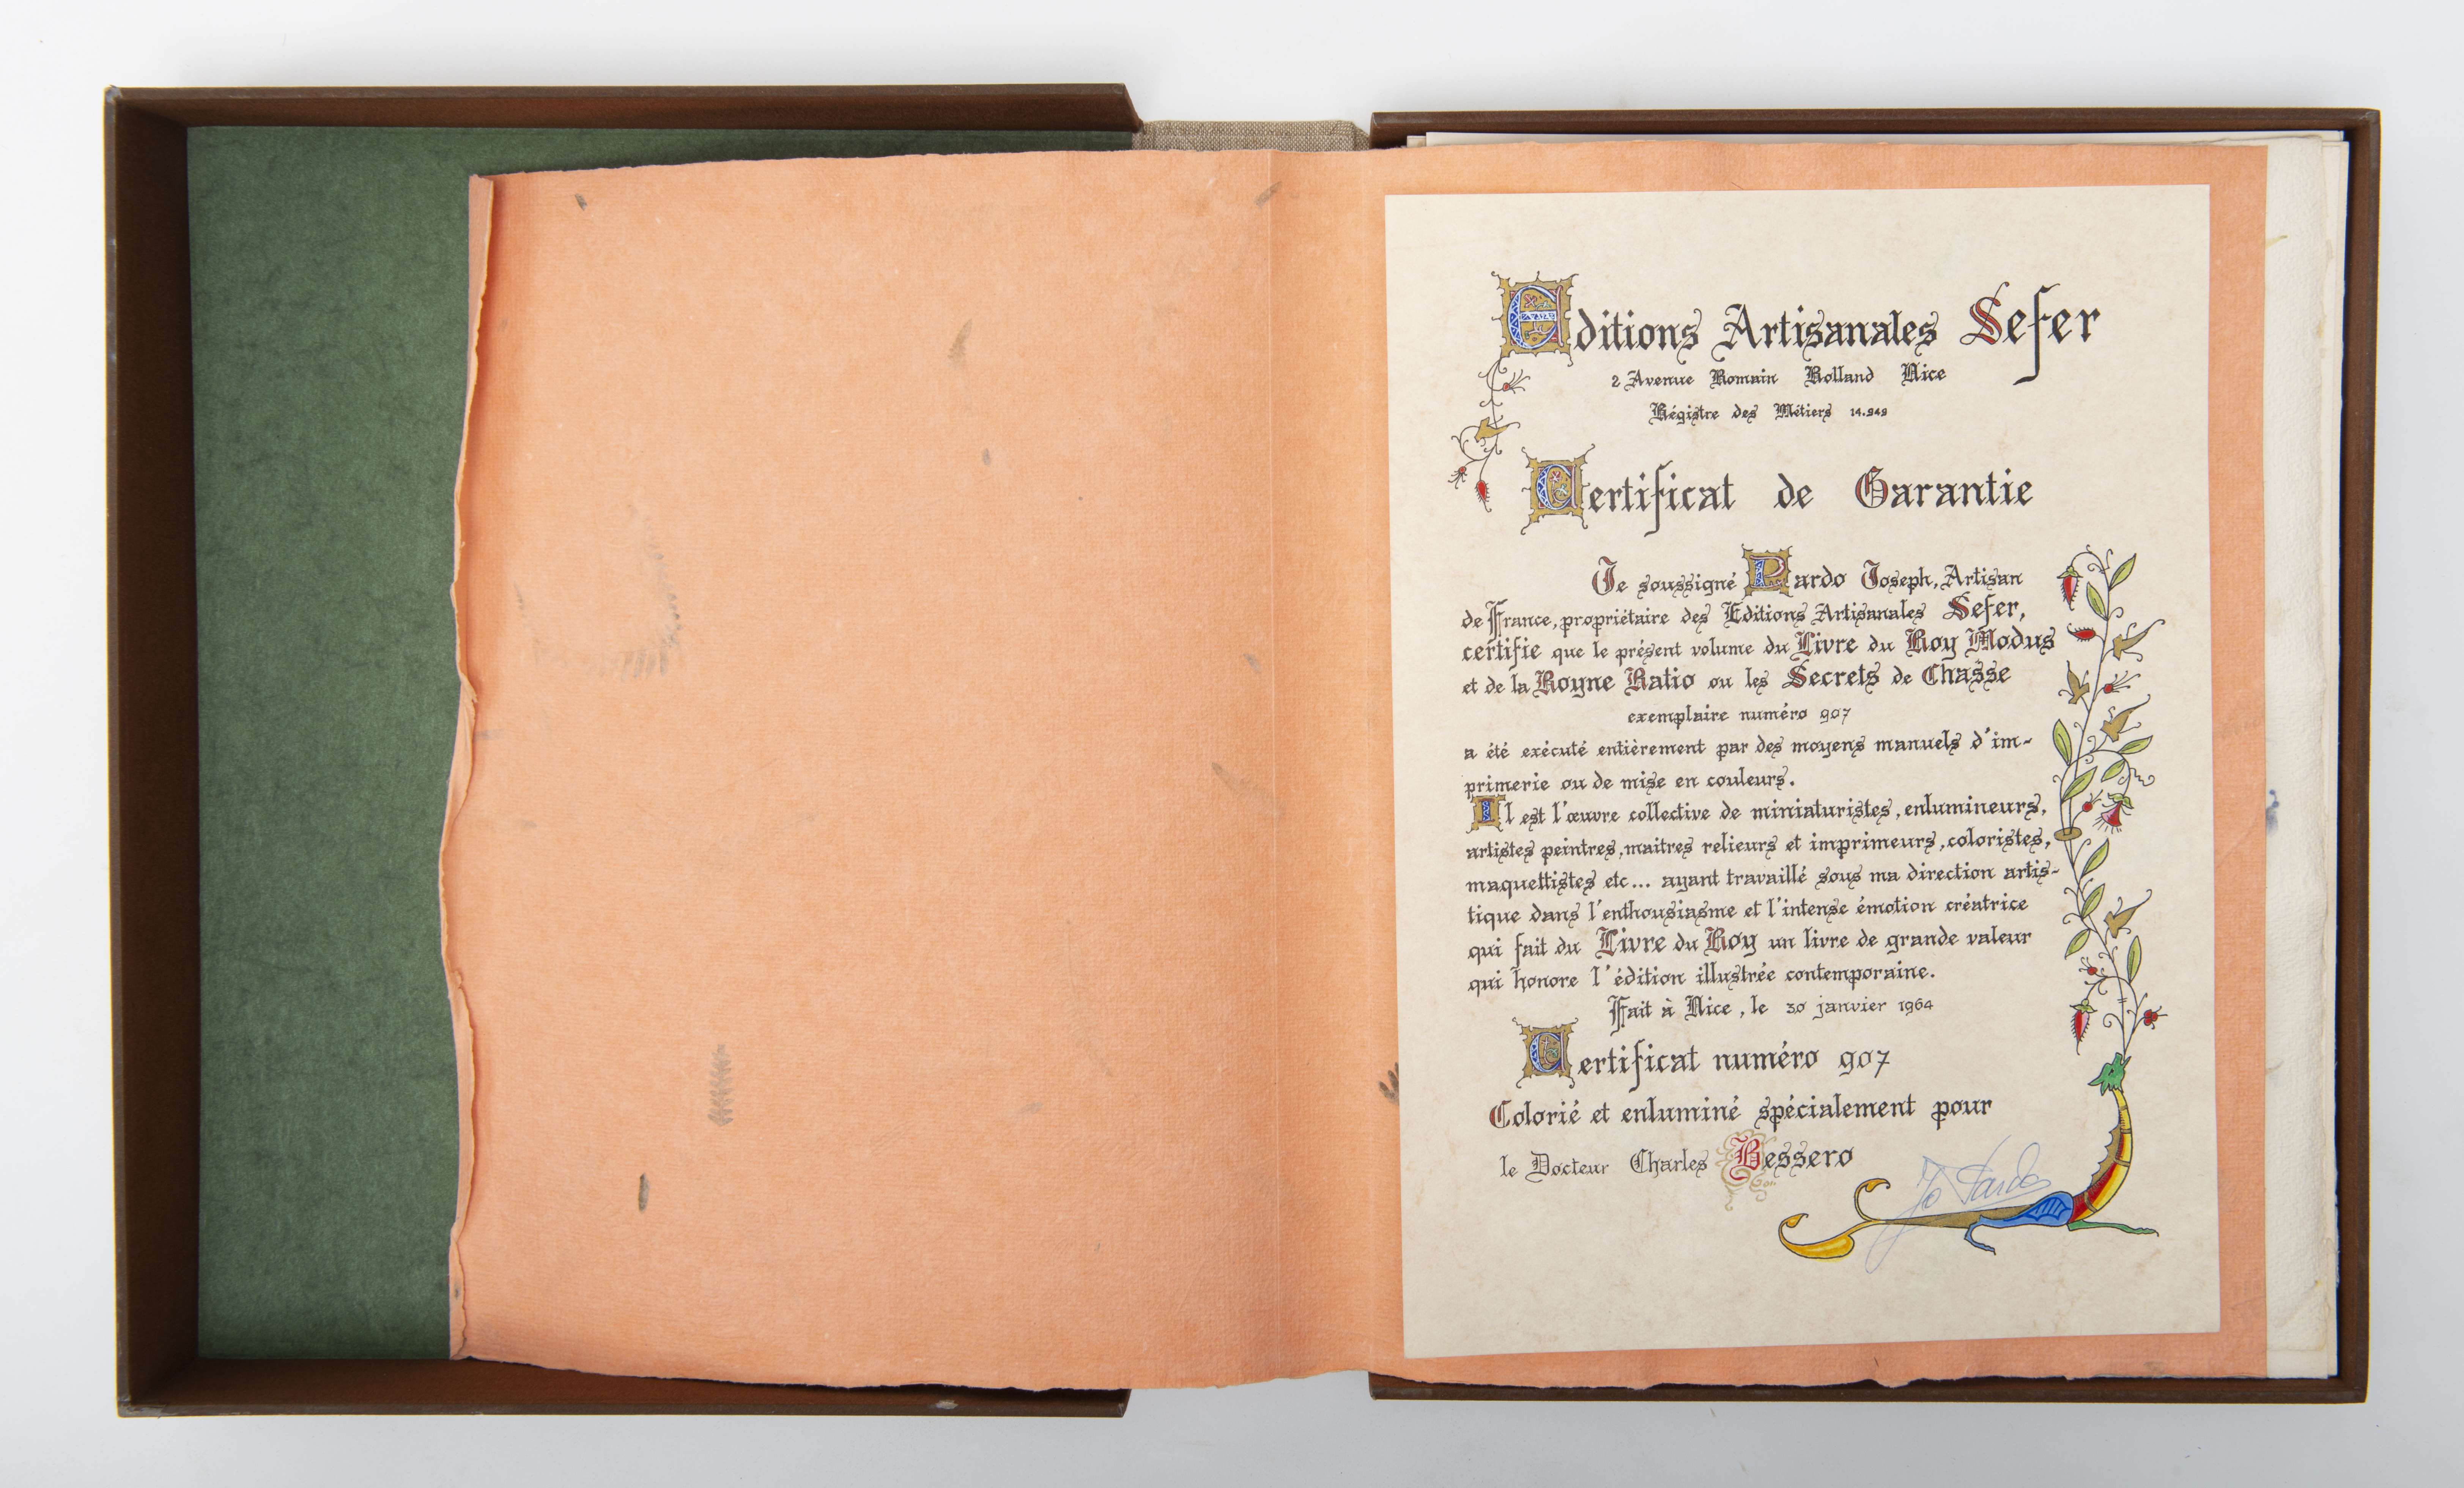 Editions Artisanales Sefer
2 Avenue Romain Rolland Nice
Régistre des Métiers 14.949
Certificat de Garantie
Je soussigné Pardo Joseph, Artisan
de France, propriétaire des Editions Artisanales Sefer,
certifie que le présent volume du Livre du Roy Modus
et de la Royne Ratio ou les Secrets de Chasse
exemplaire numéro 907
a été exécuté entièrement par des moyens manuels d'im-
primerie ou de mise en couleurs.
Il est l'œuvre collective de miniaturistes, enlumineurs,
artistes peintres, maitres relieurs et imprimeurs, coloristes,
maquettistes etc... ayant travaillé sous ma direction artis-
tique dans l'enthousiasme et l'intense émotion créatrice
qui fait du Livre du Roy un livre de grande valeur
qui honore l'édition illustrée contemporaine.
Fait à Nice, le 30 janvier 1964
Certificat numéro 907
Colorié et enluminé spécialement pour
le Docteur Charles Bessero
Jo Pardo